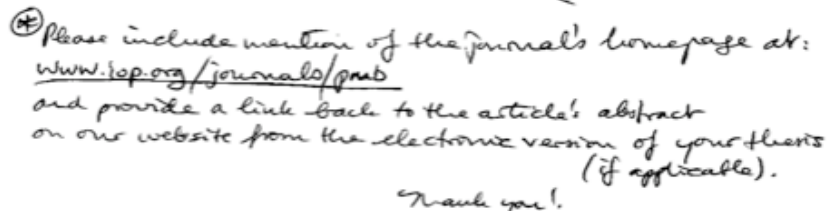 * Please include mention of the journal's homepage at:
www.iop.org/journals/pmb
and provide a link back to the article's abstract
on our website from the electronic version of your thesis
(if applicable).
Thank you!